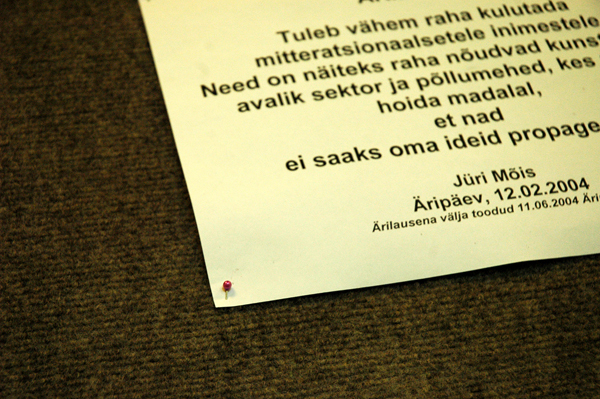 Tuleb vähem raha kulutada
mitteratsionaalsetele inimestele
Need on näiteks raha nõudvad
avalik sektor ja põllumehed, kes
hoida madalal,
et nad
ei saaks oma ideid
Jüri Mõis
Äripäev, 12.02.2004
Ärilausena välja toodud 11.06.2004